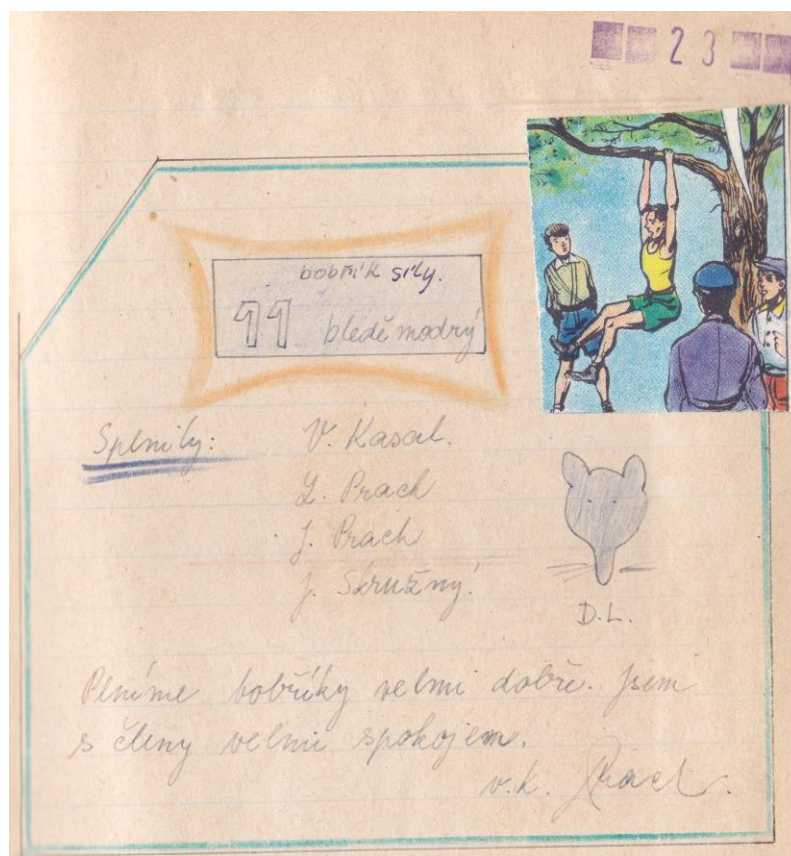 23
bobřík síly.
11 bledě modrý
Splnily: V. Kasal.
L. Prach
J. Prach
J. Skružný.
D.L.
Plníme bobříky velmi dobře. Jsem
s členy velmi spokojem.
v.k. Prach.